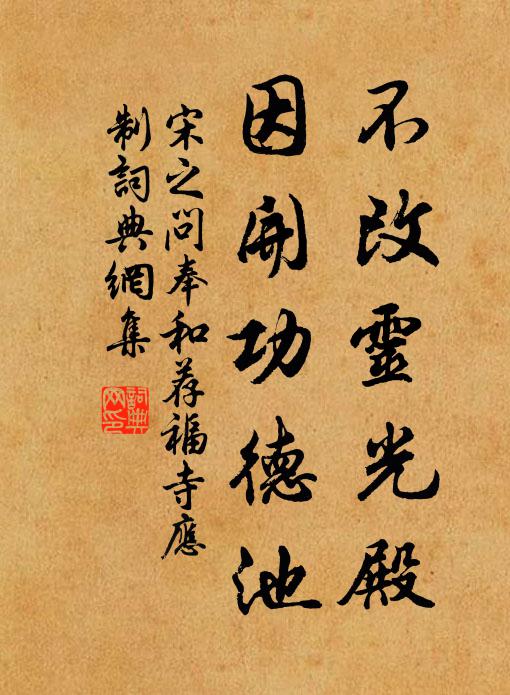 不改靈光殿
因開功德池
宋之问奉和荐福寺應
制詞典網集
詞典网印